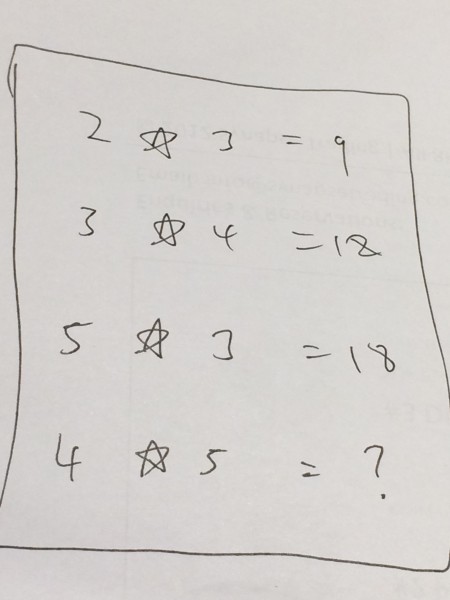 2 ☆ 3 = 9
3 ☆ 4 = 18
5 ☆ 3 = 18
4 ☆ 5 = ?